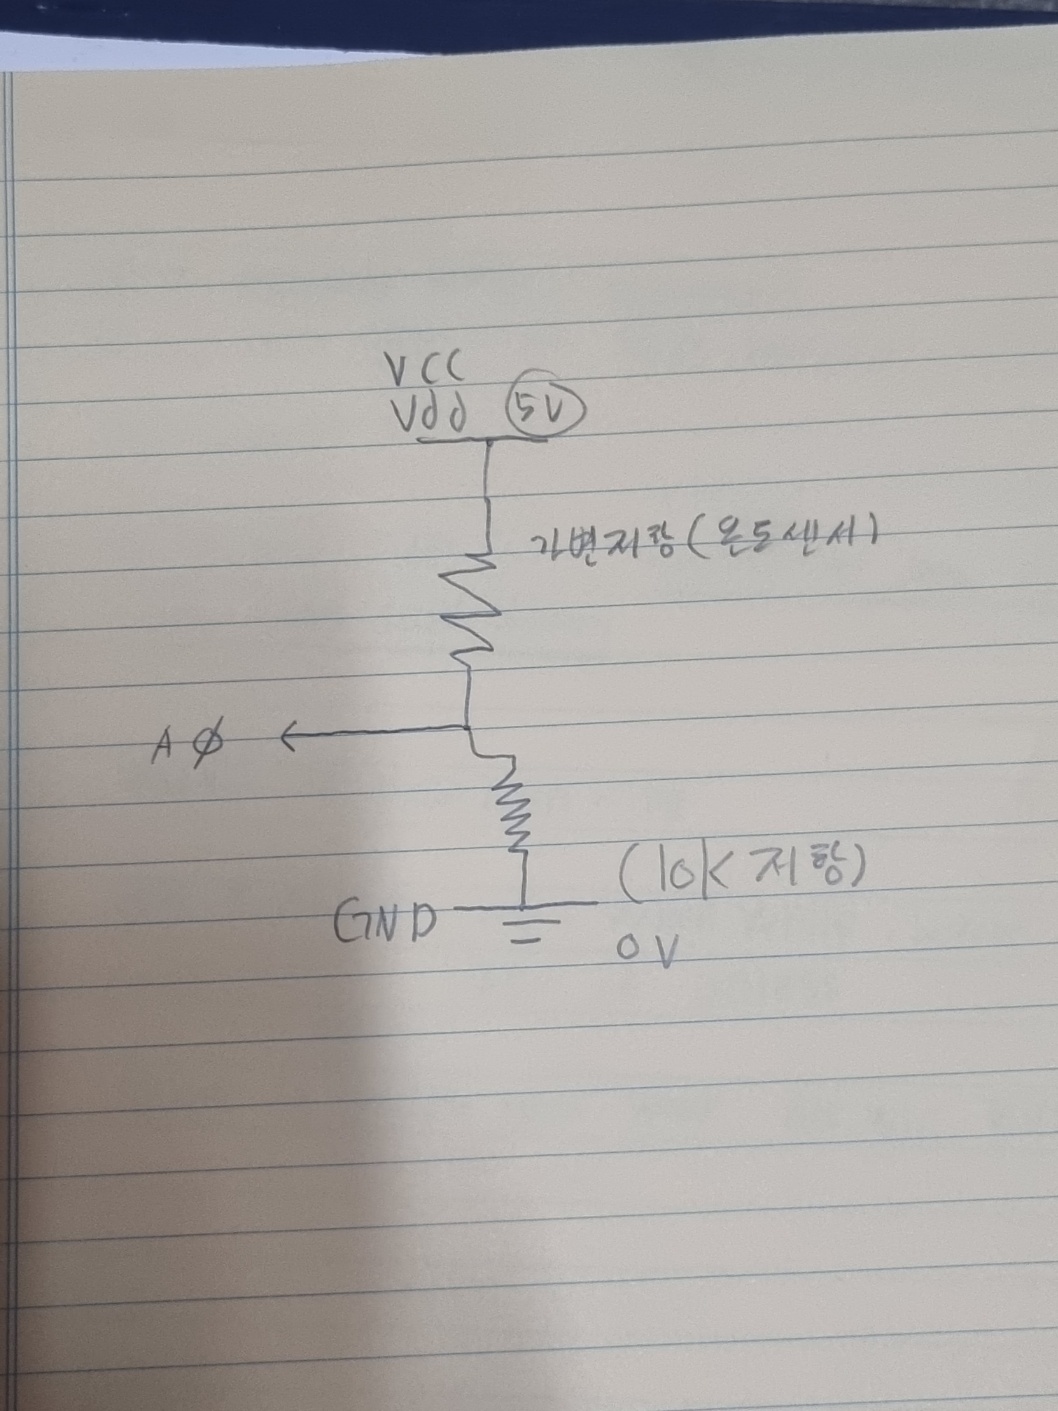 VCC
Vdd 5V
가변저항(온도센서)
A∅
(10K 저항)
GND
0V